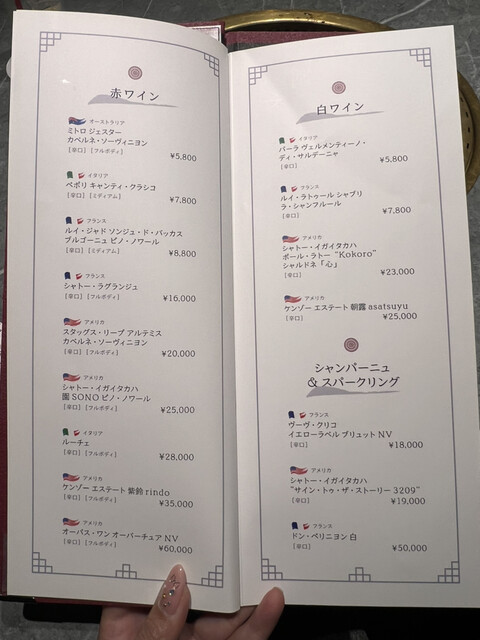 赤ワイン
オーストラリア
ミトロ ジェスター
カベルネ・ソーヴィニヨン
[辛口] [フルボディ]
¥5,800
イタリア
ペポリ キャンティ・クラシコ
[辛口] [ミディアム]
¥7,800
フランス
ルイ・ジャド ソンジュ・ド・バッカス
ブルゴーニュ ピノ・ノワール
[辛口] [ミディアム]
¥8,800
フランス
シャトー・ラグランジュ
[辛口] [フルボディ]
¥16,000
アメリカ
スタッグス・リープ アルテミス
カベルネ・ソーヴィニヨン
[辛口] [フルボディ]
¥20,000
アメリカ
シャトー・イガイタカハ
園 SONO ピノ・ノワール
[辛口] [フルボディ]
¥25,000
イタリア
ルーチェ
[辛口] [フルボディ]
¥28,000
アメリカ
ケンゾー エステート 紫鈴 rindo
[辛口] [フルボディ]
¥35,000
アメリカ
オーパス・ワン オーバーチュア NV
[辛口] [フルボディ]
¥60,000
白ワイン
イタリア
パーラ ヴェルメンティーノ・
ディ・サルデーニャ
[辛口]
¥5,800
フランス
ルイ・ラトゥール シャブリ
ラ・シャンフルール
[辛口]
¥7,800
アメリカ
シャトー・イガイタカハ
ポール・ラトー “Kokoro”
シャルドネ「心」
[辛口]
¥23,000
アメリカ
ケンゾー エステート 朝露 asatsuyu
[辛口]
¥25,000
シャンパーニュ
& スパークリング
フランス
ヴーヴ・クリコ
イエローラベル ブリュット NV
[辛口]
¥18,000
アメリカ
シャトー・イガイタカハ
“サイン・トゥ・ザ・ストーリー 3209”
[辛口]
¥19,000
フランス
ドン・ペリニヨン 白
[辛口]
¥50,000